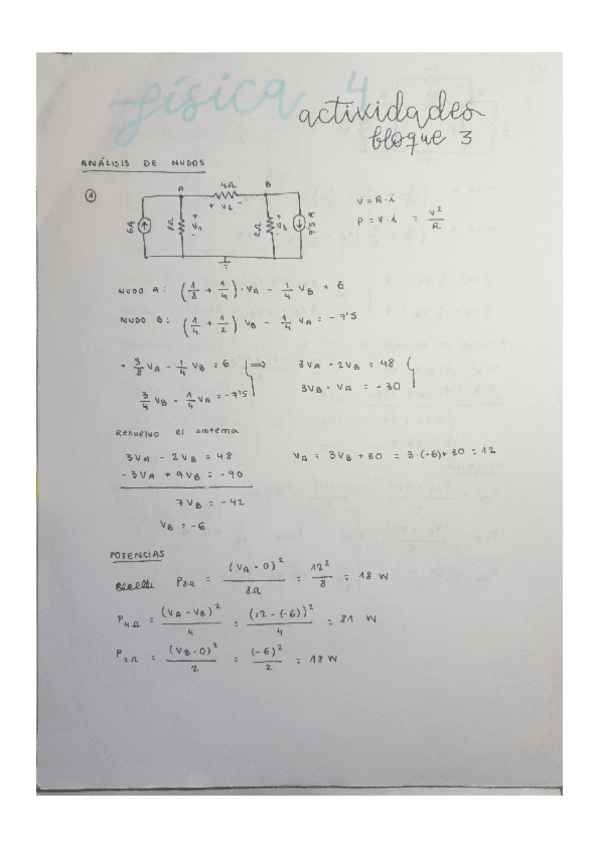 física 4
actividades
bloque 3
ANÁLISIS DE NUDOS
1
A 4Ω B
+ V2 -
6A 8Ω - V1 + 2Ω - V3 + 7'5 A
V = R·i
P = V·i = V²/R
NUDO A: (1/8 + 1/4)·VA - 1/4 VB = 6
NUDO B: (1/4 + 1/2) VB - 1/4 VA = -7'5
· 3/8 VA - 1/4 VB = 6 ⇒ 3VA - 2VB = 48
3/4 VB - 1/4 VA = -7'5 3VB - VA = -30
Resuelvo el sistema
3VA - 2VB = 48 VA = 3VB + 30 = 3·(-6)+30 = 12
-3VA + 9VB = -90
7VB = -42
VB = -6
POTENCIAS
P8Ω = (VA - 0)²/8Ω = 12²/8 = 18 W
P4Ω = (VA - VB)²/4 = (12 - (-6))²/4 = 81 W
P2Ω = (VB - 0)²/2 = (-6)²/2 = 18 W